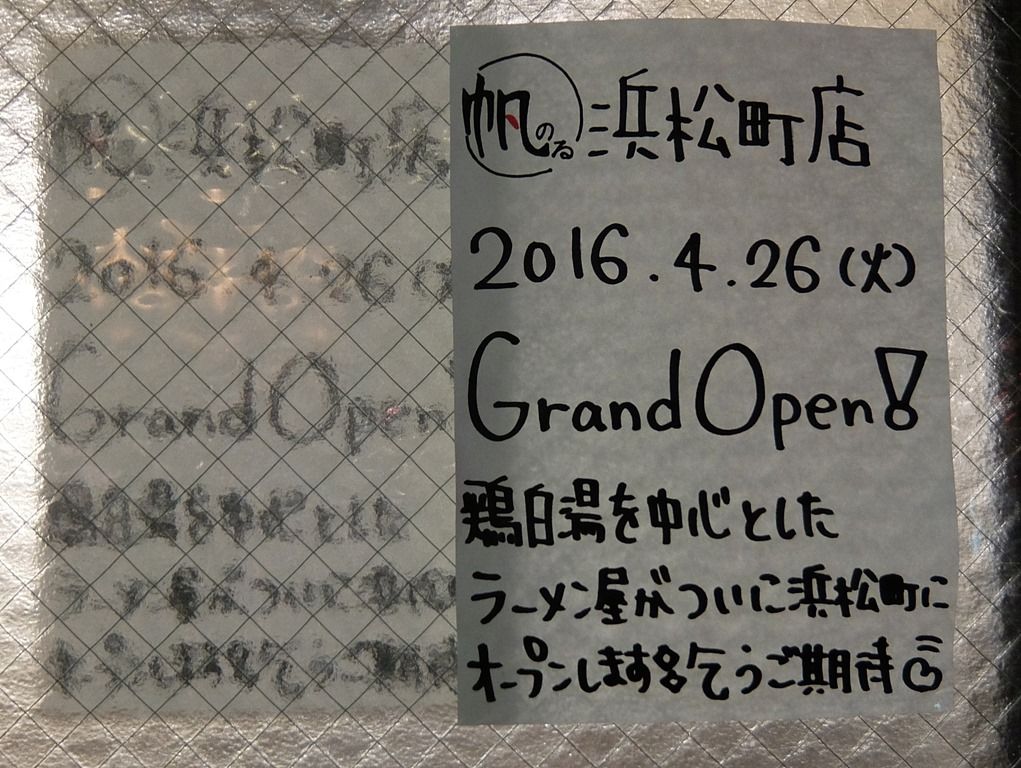 帆のる 浜松町店
2016.4.26(火)
Grand Open!
鶏白湯を中心とした
ラーメン屋がついに浜松町に
オープンします!!乞うご期待